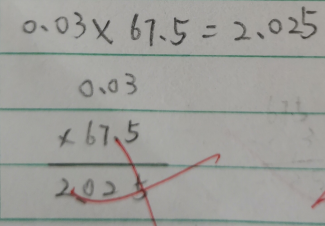 0.03 × 67.5 = 2.025
0.03
× 67.5
2.025